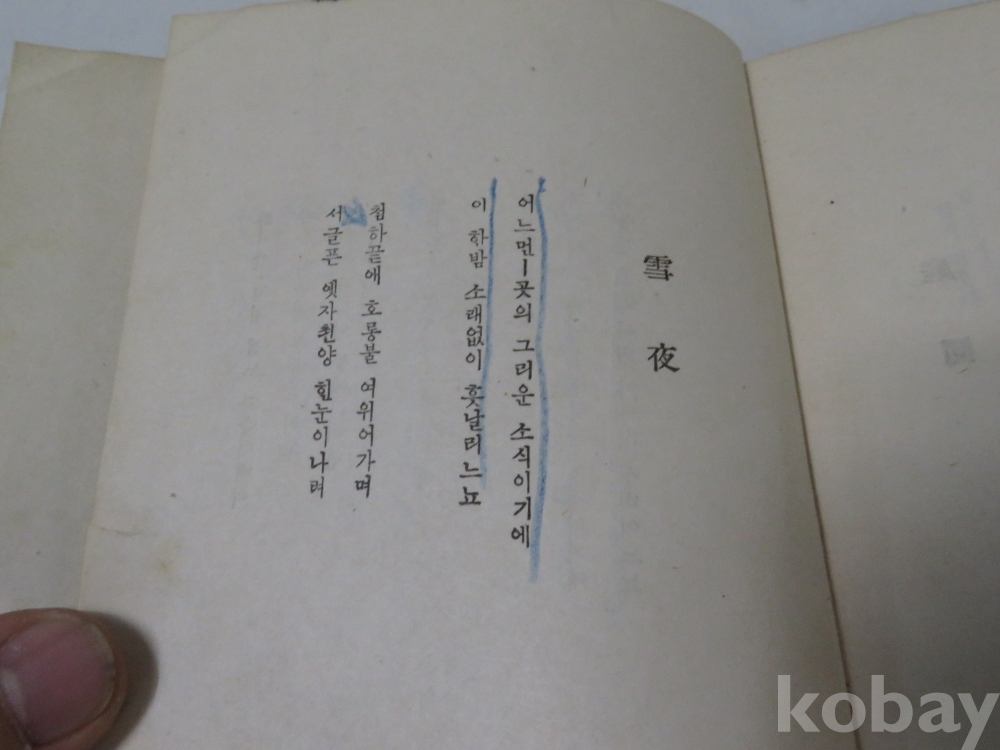 雪夜
어느먼ㅡ곳의 그리운 소식이기에
이 하밤 소래없이 흣날리느뇨
첨하끝애 호롱불 여위어가며
서글픈 옛자최양 힌눈이나려
kobay